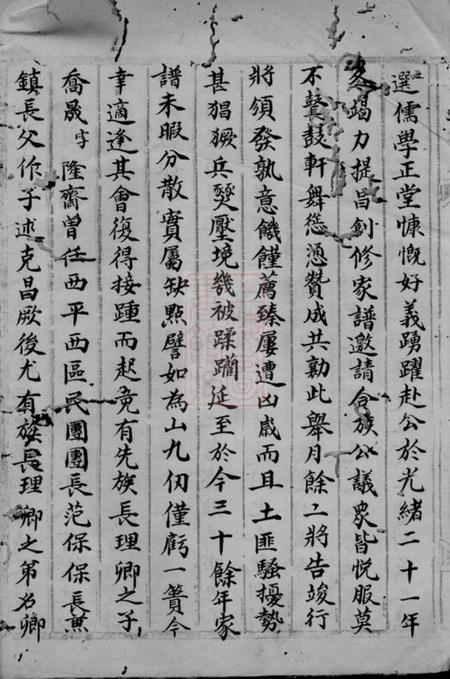 選儒學正堂慷慨好義踴躍赴公於光緒二十一年
冬竭力提昌創修家譜邀請合族公議眾皆悅服莫
不鼙鼓軒舞慫慂贊成共勷此舉月餘工將告竣行
將頒發孰意饑饉薦臻屢遭凶歲而且土匪騷擾勢
甚猖獗兵燹壓境幾被蹂躪延至於今三十餘年家
譜未暇分散實屬缺點譬如為山九仞僅虧一簣今
幸適逢其會復得接踵而起竞有先族長理卿之子
喬晟字隆齋曾任西平西區民團團長范保保長兼
鎮長父作子述克昌厥後尤有族長理卿之弟名卿